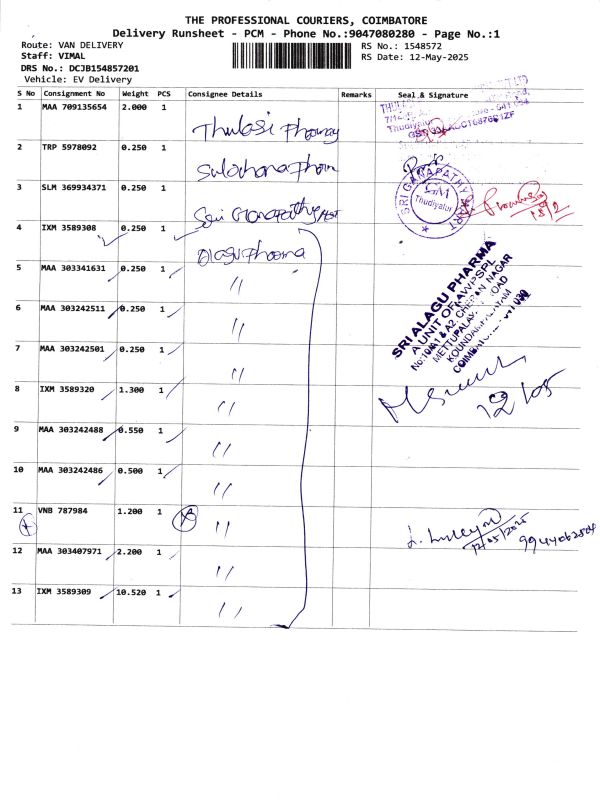 THE PROFESSIONAL COURIERS, COIMBATORE
Delivery Runsheet - PCM - Phone No.:9047080280 - Page No.:1
Route: VAN DELIVERY
RS No.: 1548572
Staff: VIMAL
RS Date: 12-May-2025
DRS No.: DCJB154857201
Vehicle: EV Delivery
S No Consignment No Weight PCS Consignee Details Remarks Seal & Signature
1 MAA 709135654 2.000 1 Thulasi Pharmacy
Thudiyalur
2 TRP 5978092 0.250 1 Sulochana Pharm
3 SLM 369934371 0.250 1 Sri Ganapathy
SRI GANAPATHY MART
Thudiyalur
4 IXM 3589308 0.250 1 Alagu Pharma
5 MAA 303341631 0.250 1 "
SRI ALAGU PHARMA
A UNIT OF AWPSPL
METTUPALAYAM ROAD
6 MAA 303242511 0.250 1 "
7 MAA 303242501 0.250 1 "
8 IXM 3589320 1.300 1 "
12/05
9 MAA 303242488 0.550 1 "
10 MAA 303242486 0.500 1 "
11 VNB 787984 1.200 1 "
12/05/2025
12 MAA 303407971 2.200 1 "
13 IXM 3589309 10.520 1 "